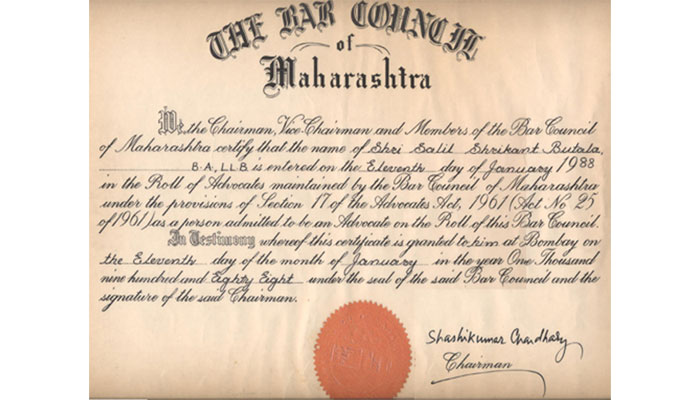 THE BAR COUNCIL
of
Maharashtra
We, the Chairman, Vice-Chairman and Members of the Bar Council
of Maharashtra certify that the name of Shri Salil Shrikant Butala,
B.A., LL.B. is entered on the Eleventh day of January 1988
in the Roll of Advocates maintained by the Bar Council of Maharashtra
under the provisions of Section 17 of the Advocates Act, 1961 (Act No 25
of 1961) as a person admitted to be an Advocate on the Roll of this Bar Council.
In Testimony whereof this certificate is granted to him at Bombay on
the Eleventh day of the month of January in the year One Thousand
nine hundred and Eighty Eight under the seal of the said Bar Council and the
signature of the said Chairman.
Shashikumar Chaudhary
Chairman